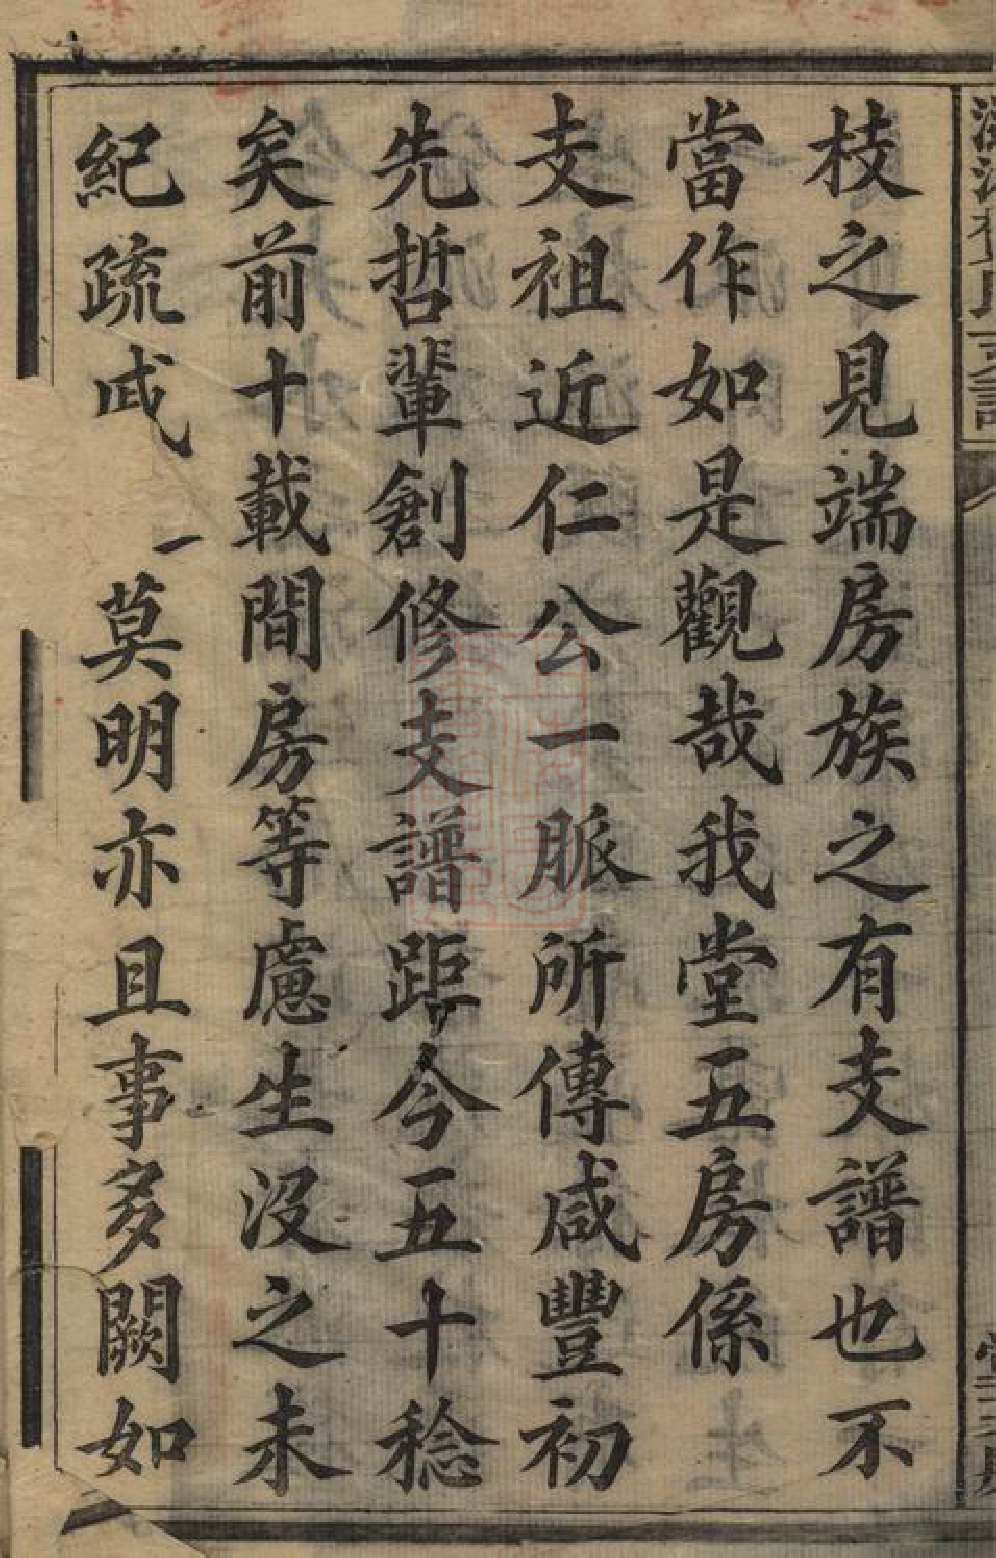 枝之見端房族之有支譜也不
當作如是觀哉我堂五房係
支祖近仁公一脈所傳咸豐初
先哲輩創修支譜距今五十稔
矣前十載間房等慮生沒之未
紀疏戚莫明亦且事多闕如